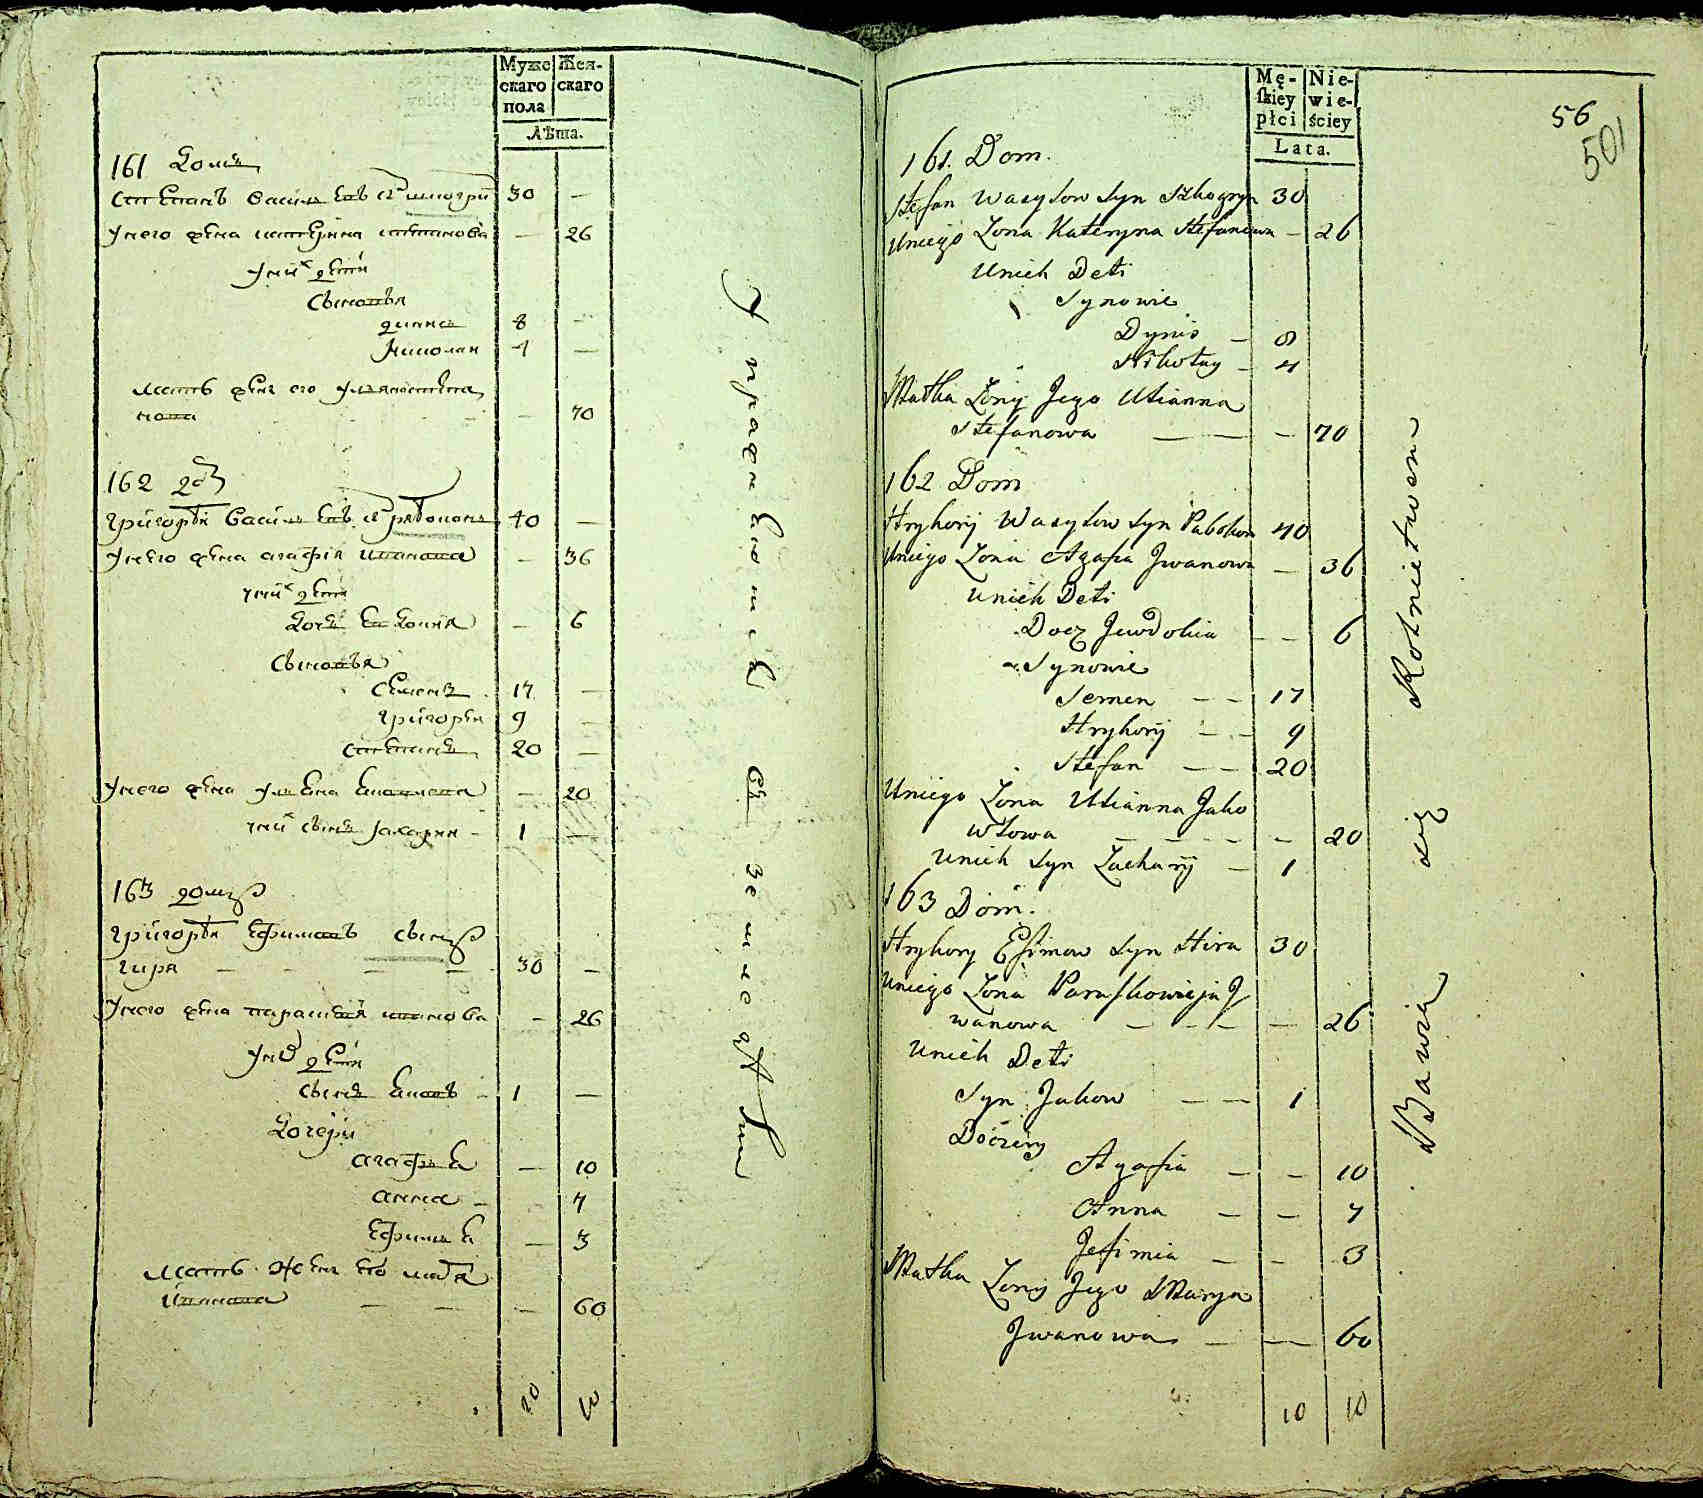 Мужс
скаго
пола
Жен-
скаго
Лѣта.
161 Домъ
Степанъ Васильевъ с
30 —
У него жена катерина степанова — 26
У них дети
Сыновья
8 —
Николаи 4 —
мать жены его улияна степа
нова — 70
162 дом
Григорѣй Васильевъ с рябоконь 40 —
У него жена агафия иванова — 36
у них дети
Дочь Евдокия — 6
Сыновья
Семенъ 17 —
григорѣи 9 —
степанъ 20 —
У него жена ульяна — 20
у них сынъ захарии 1 —
163 домъ
григорѣй Ефимовъ сынъ
гиря — — — — 30 —
У него жена параскевия иванова — 26
У них дети
сынъ Яковъ 1 —
Дочери
агафия — 10
анна — 7
Ефимия — 3
мать жены его маря
Иванова — — — 60
10 10
Упражняются в земледѣл
Mę-
ſkiey
płci
Nie-
wie-
ściey
Lata.
56
501
161. Dom.
Stefan Wasylow Syn 30
Uniego Zona Kateryna Stefanowa — 26
Unich Deti
Synowie
Dynis — 8
Nikołay — 4
Matka Zony Jego Ulianna
Stefanowa — — — 70
162 Dom
Hryhorÿ Wasylow Syn Rabokon 40
Uniego Zona Agafia Jwanowa — 36
Unich Deti
Docz Jewdokia — — 6
Synowie
Semen — — 17
Hryhorÿ — — 9
Stefan — — 20
Uniego Zona Ulianna Jako
włowa — — — — — 20
Unich Syn Zacharÿ — 1
163 Dom.
Hryhory Efimow Syn Hira 30
Uniego Zona Paraſkowieja J
wanowa — — — — 26
Unich Deti
Syn Jakow — — 1
Doczery
Agafia — — 10
Anna — — 7
Jefimia — — 3
Matka Zony Jego Marya
Jwanowa — — 60
10 10
Bawią się Rolnictwem